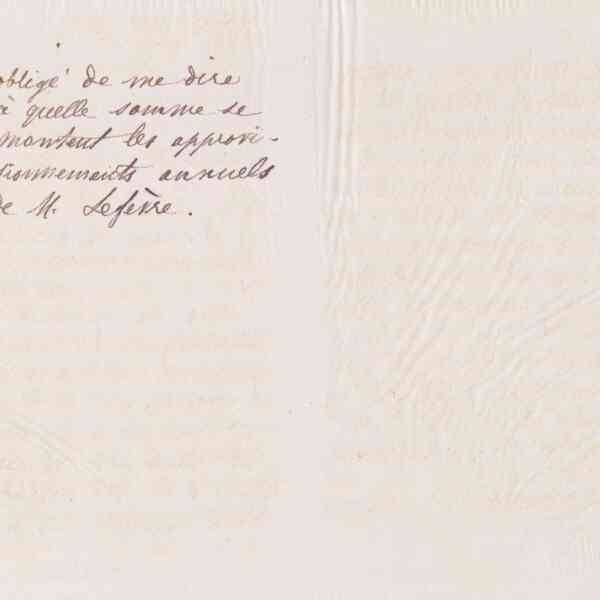 obligé de me dire
à quelle somme se
montent les approvi-
sionnements annuels
de M. Lefèvre.